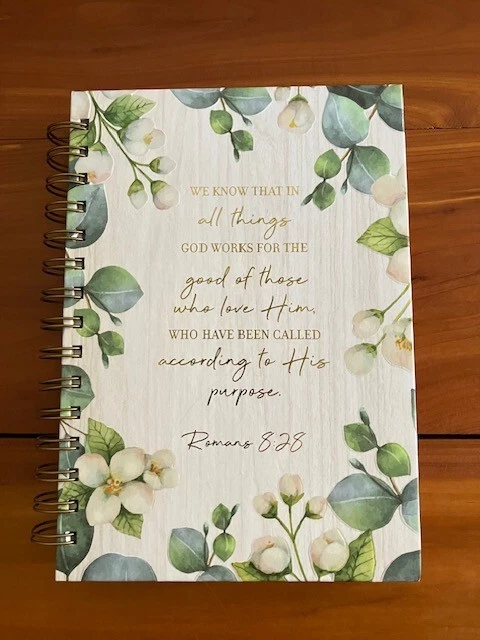 WE KNOW THAT IN
all things
GOD WORKS FOR THE
good of those
who love Him,
WHO HAVE BEEN CALLED
according to His
purpose.
Romans 8:28